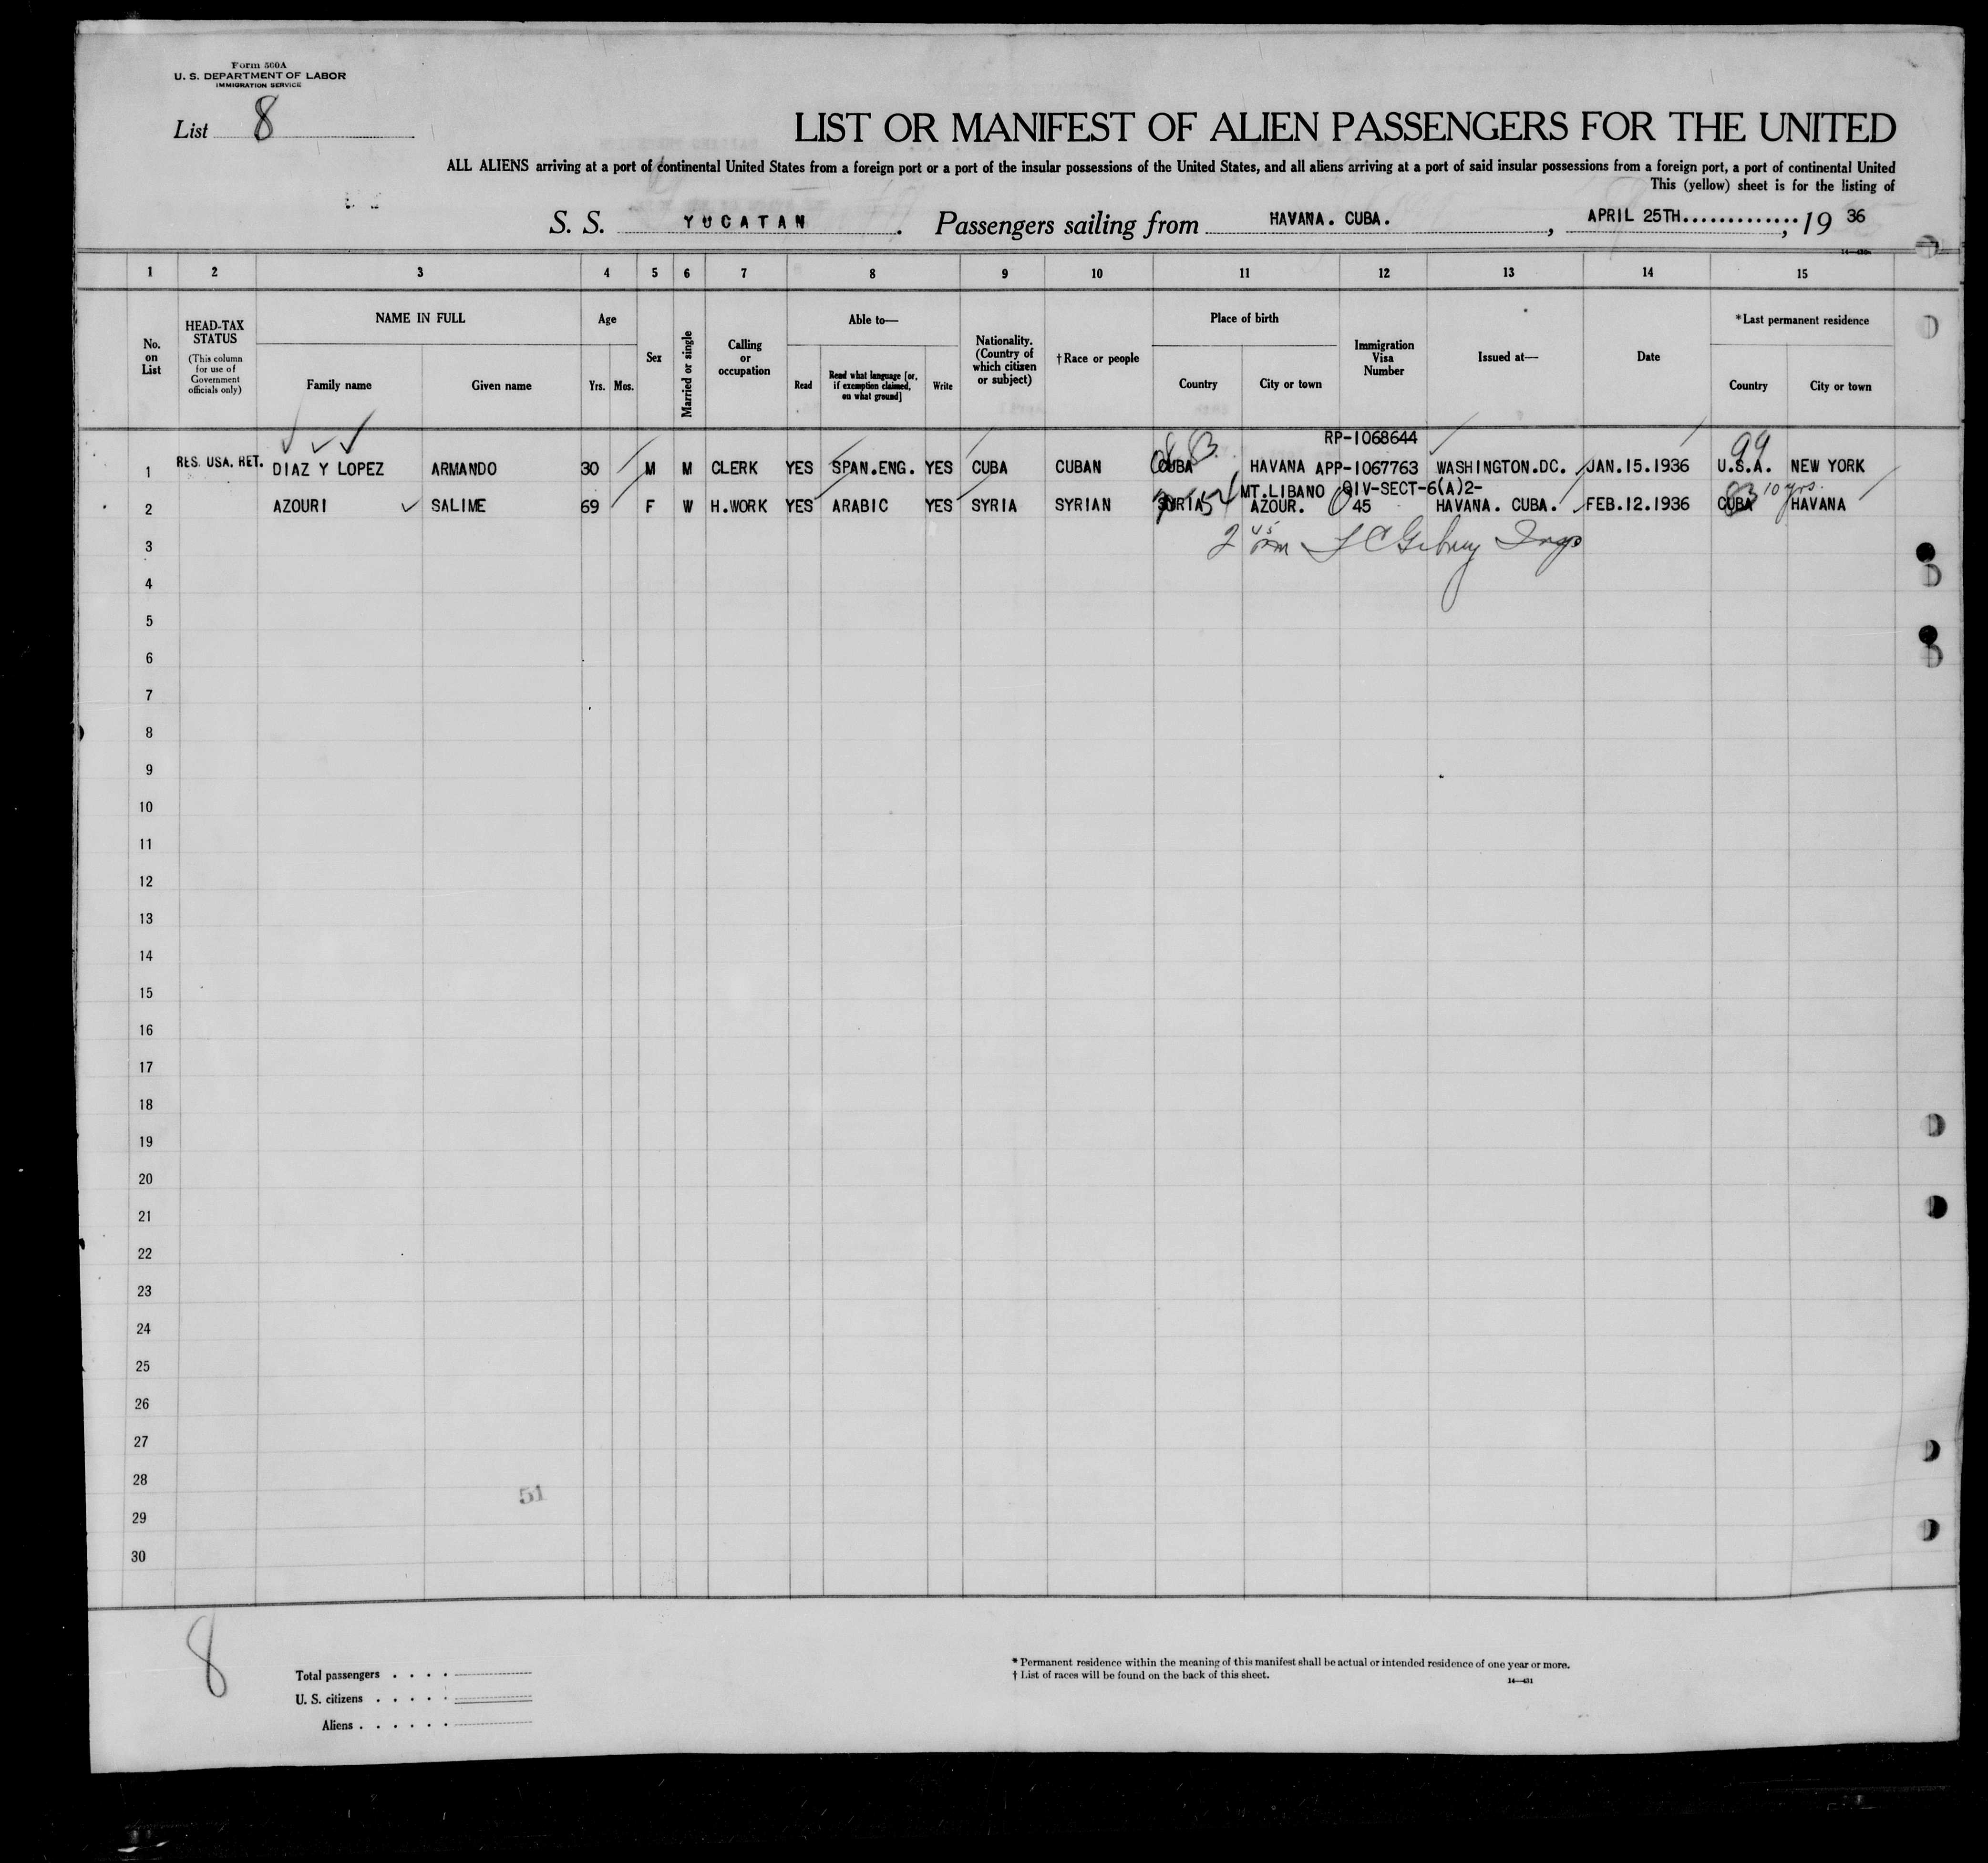 Form 500A
U. S. DEPARTMENT OF LABOR
IMMIGRATION SERVICE
List 8
LIST OR MANIFEST OF ALIEN PASSENGERS FOR THE UNITED
ALL ALIENS arriving at a port of continental United States from a foreign port or a port of the insular possessions of the United States, and all aliens arriving at a port of said insular possessions from a foreign port, a port of continental United
This (yellow) sheet is for the listing of
S. S. YUCATAN. Passengers sailing from HAVANA. CUBA., APRIL 25TH............., 19 36
1 2 3 4 5 6 7 8 9 10 11 12 13 14 15
No. on List
HEAD-TAX STATUS
(This column for use of Government officials only)
NAME IN FULL
Family name
Given name
Age
Yrs. Mos.
Sex
Married or single
Calling or occupation
Able to—
Read
Read what language [or, if exemption claimed, on what ground]
Write
Nationality. (Country of which citizen or subject)
† Race or people
Place of birth
Country
City or town
Immigration Visa Number
Issued at—
Date
* Last permanent residence
Country
City or town
RP-1068644 99
1 RES. USA. RET. DIAZ Y LOPEZ ARMANDO 30 M M CLERK YES SPAN.ENG. YES CUBA CUBAN CUBA HAVANA APP-1067763 WASHINGTON.DC. JAN.15.1936 U.S.A. NEW YORK
MT.LIBANO QIV-SECT-6(A)2- 83 10 yrs.
2 AZOURI SALIME 69 F W H.WORK YES ARABIC YES SYRIA SYRIAN SYRIA AZOUR. 45 HAVANA. CUBA. FEB.12.1936 CUBA HAVANA
3
4
5
6
7
8
9
10
11
12
13
14
15
16
17
18
19
20
21
22
23
24
25
26
27
28
51
29
30
8
Total passengers . . . .
U. S. citizens . . . . .
Aliens . . . . . .
* Permanent residence within the meaning of this manifest shall be actual or intended residence of one year or more.
† List of races will be found on the back of this sheet.
14—431